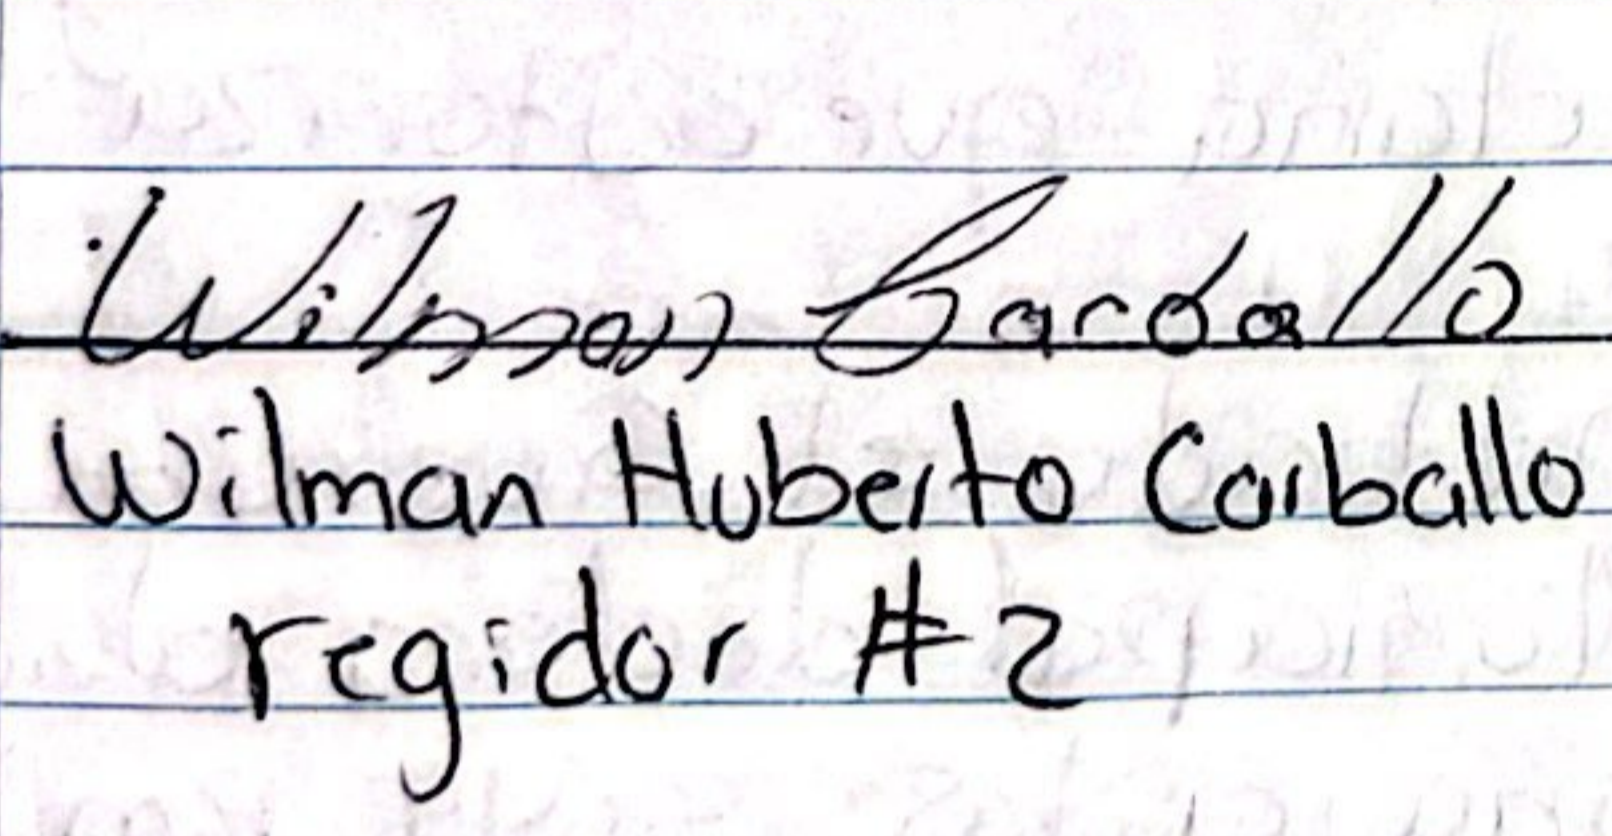 Wilman Carballo
Wilman Huberto Carballo
regidor #2